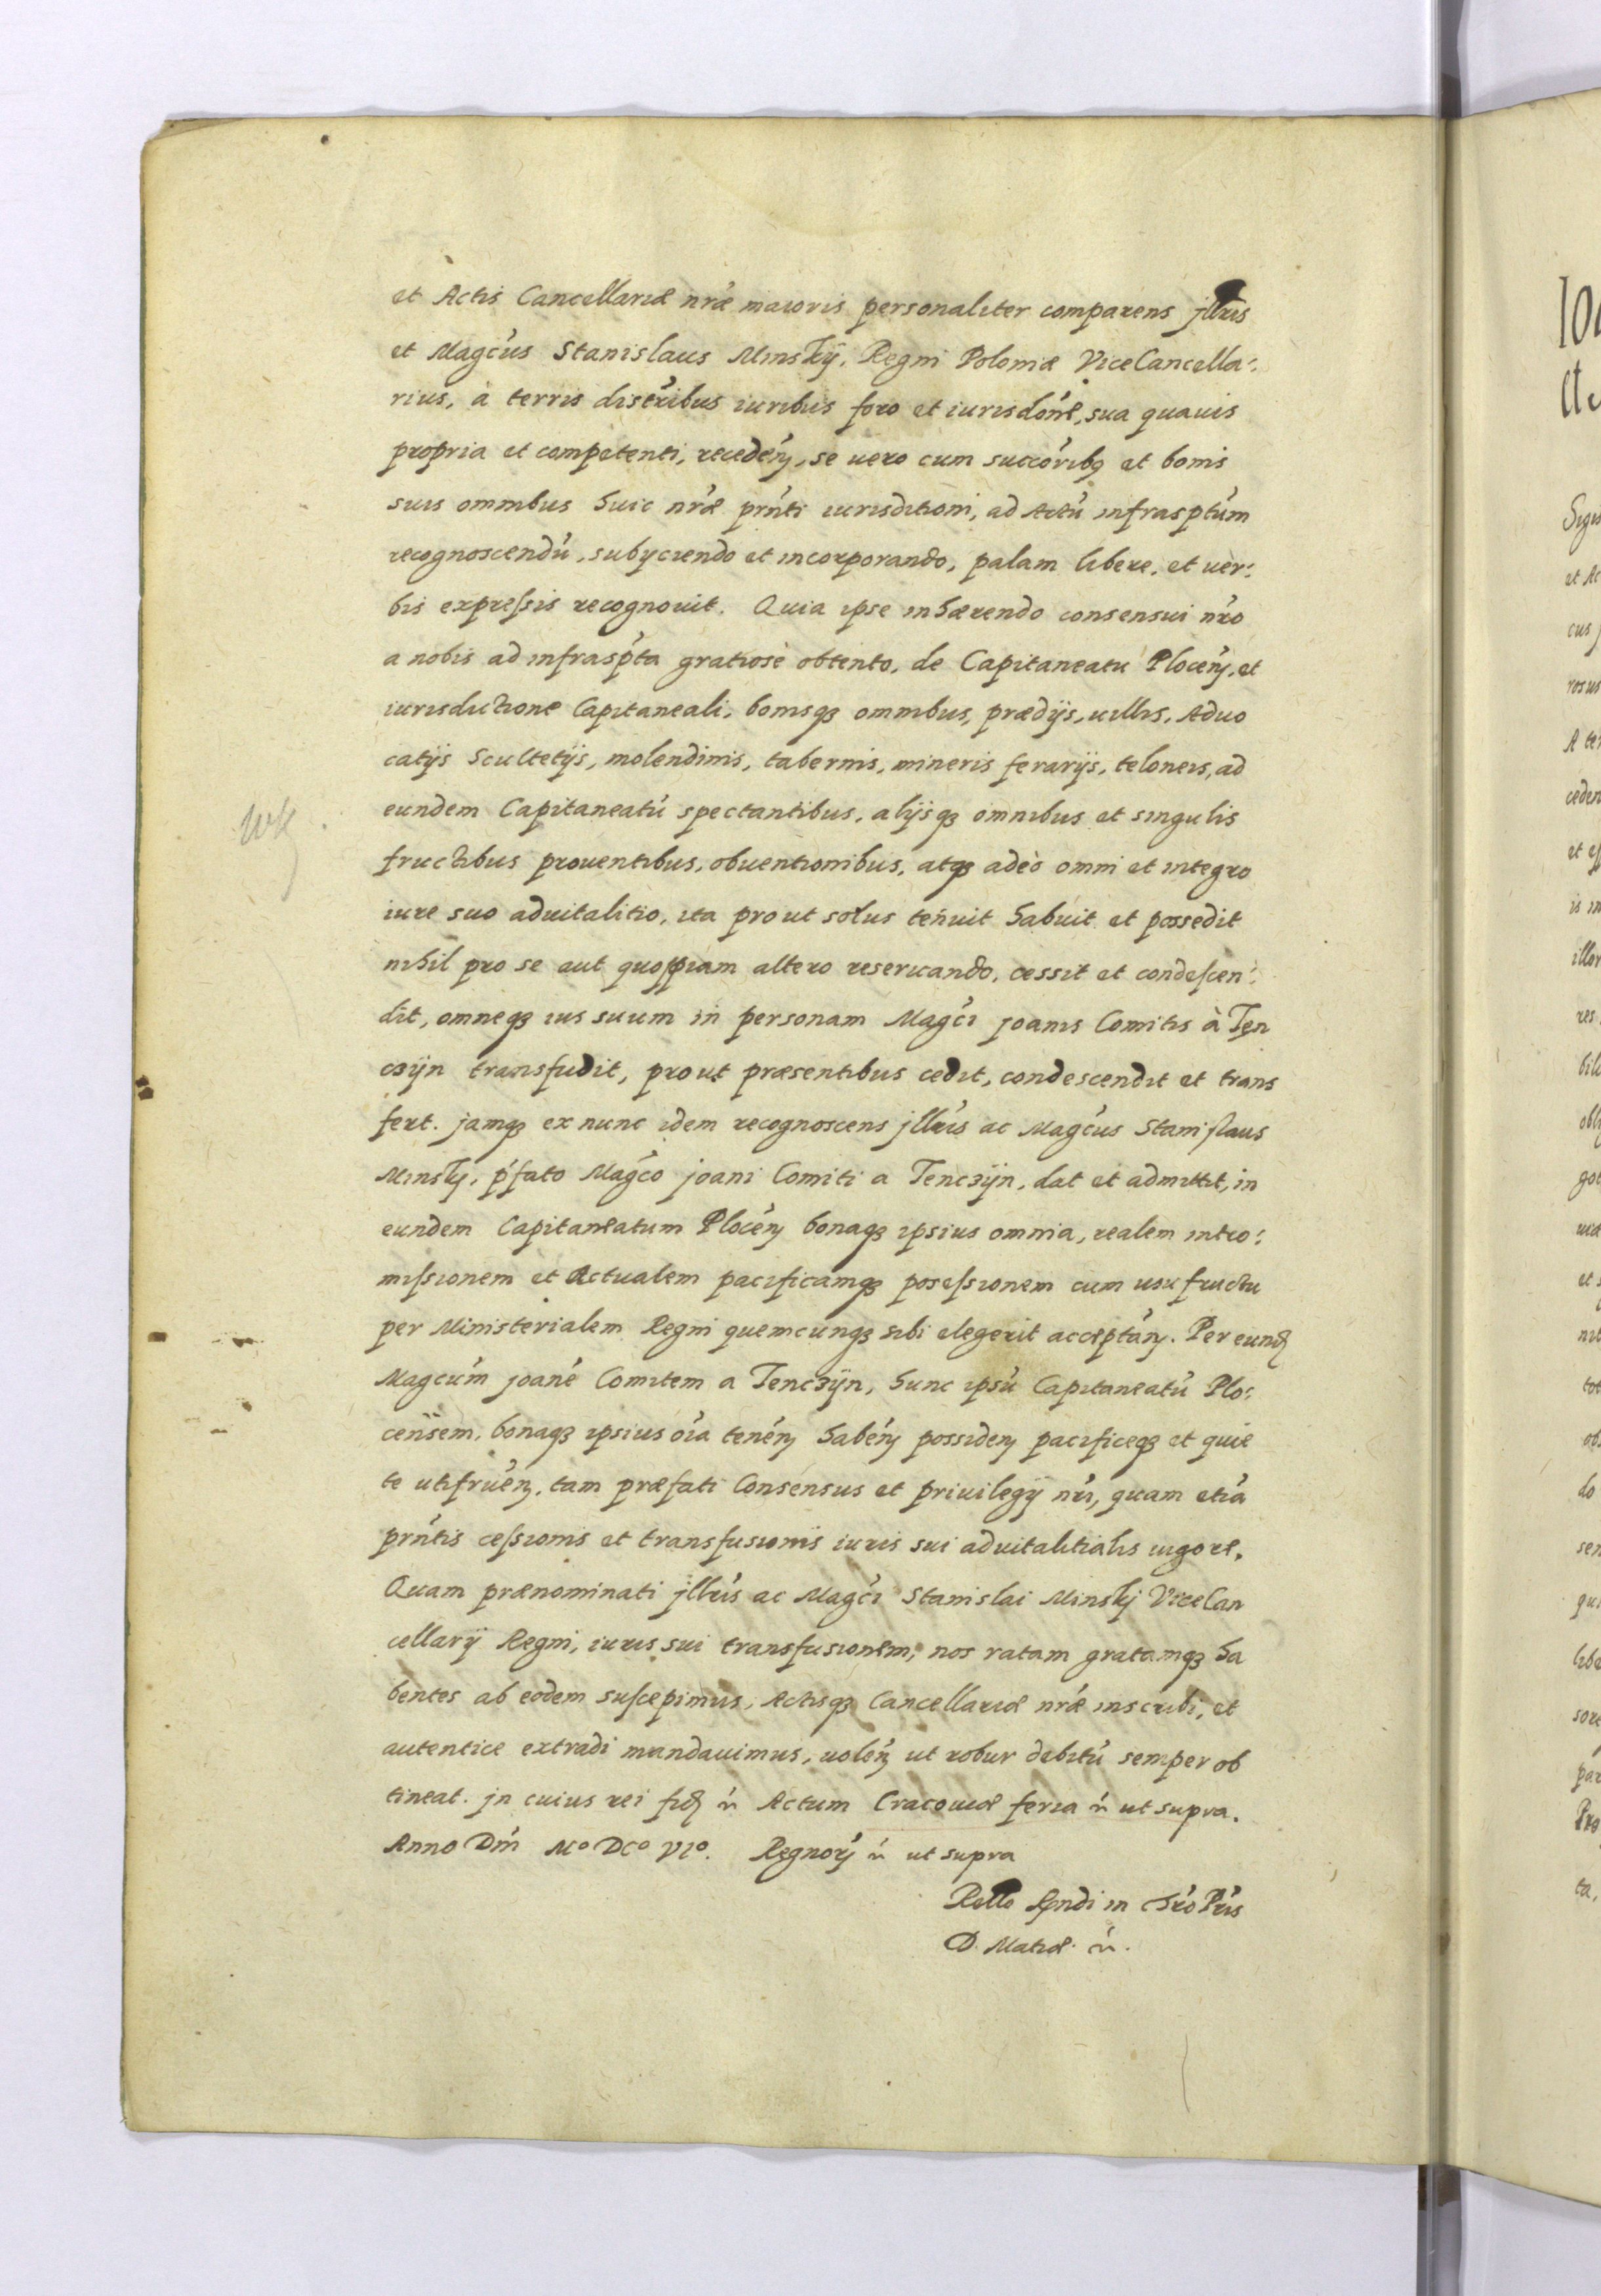 et Actis Cancellariæ nrǽ maioris personaliter comparens jllris
et Magcus Stanislaus Minskÿ. Regni Poloniæ ViceCancella:
rius, à terris distribus iuribus foro et iurisdone, sua quauis
propria et competenti, recedeń, se uero cum succoribꝫ et bonis
suis omnibus huic nræ prnti iurisditioni, ad Actũ infrasptum
recognoscendũ, subyciendo et incorporando, palam libere, et uer:
bis expreſsis recognouit. Quia ipse inhærendo consensui nro
a nobis ad infraspta gratiosè obtento, de Capitaneatu Plocen, et
iurisdictione Capitaneali, bonisqꝫ omnibus, prædijs, uillis, Aduo
catijs Scultetijs, molendinis, tabernis, mineris ferarijs, teloneis, ad
eundem Capitaneatũ spectantibus, alijsqꝫ omnibus et singulis
fructibus prouentibus, obuentionibus, atqꝫ adeò omni et integro
iure suo aduitalitio, ita prout solus tenuit habuit et possedit
nihil pro se aut quoſpiam altero reseruando, cessit et condeſcen:
dit, omneqꝫ ius suum in personam Magci Joanis Comitis à Ten
cʒÿn transfudit, prout præsentibus cedit, condescendit et trans
fert. Jamqꝫ ex nunc idem recognoscens jllris ac Magcus Staniſlaus
Minskÿ, pfato Magco Joani Comiti a Tencʒÿn, dat et admittit, in
eundem Capitaneatum Plocen bonaqꝫ ipsius omnia, realem intro:
miſsionem et Actualem pacificamqꝫ poseſsionem cum usu fructu
per Ministerialem Regni quemcunqꝫ sibi elegerit acceptan. Per eund
Magcum Joane Comitem a Tencʒÿn, hunc ipsũ Capitaneatũ Plo:
censem, bonaqꝫ ipsius oia tenen haben possiden pacificeqꝫ et quie
te utifruen, tam præfati Consensus et priuilegÿ nri, quam etia
prntis ceſsionis et transfusionis iuris sui aduitalitialis uigore.
Quam prænominati jllris ac Magci Stanislai Minskÿ ViceCan
cellarÿ Regni, iuris sui transfusionem, nos ratam gratamqꝫ ha
bentes ab eodem suſcepimus, Actisqꝫ Cancellariæ nræ inscribi, et
autentice extradi mandauimus, uolen ut robur debitũ semper ob
tineat. jn cuius rei fid ń Actum Cracouiæ feria ń ut supra.
Anno Dni Mº DCº VIº. Regnorũ ń ut supra
Rello Rndi in Chro Pris
D. Matiæ. ń.